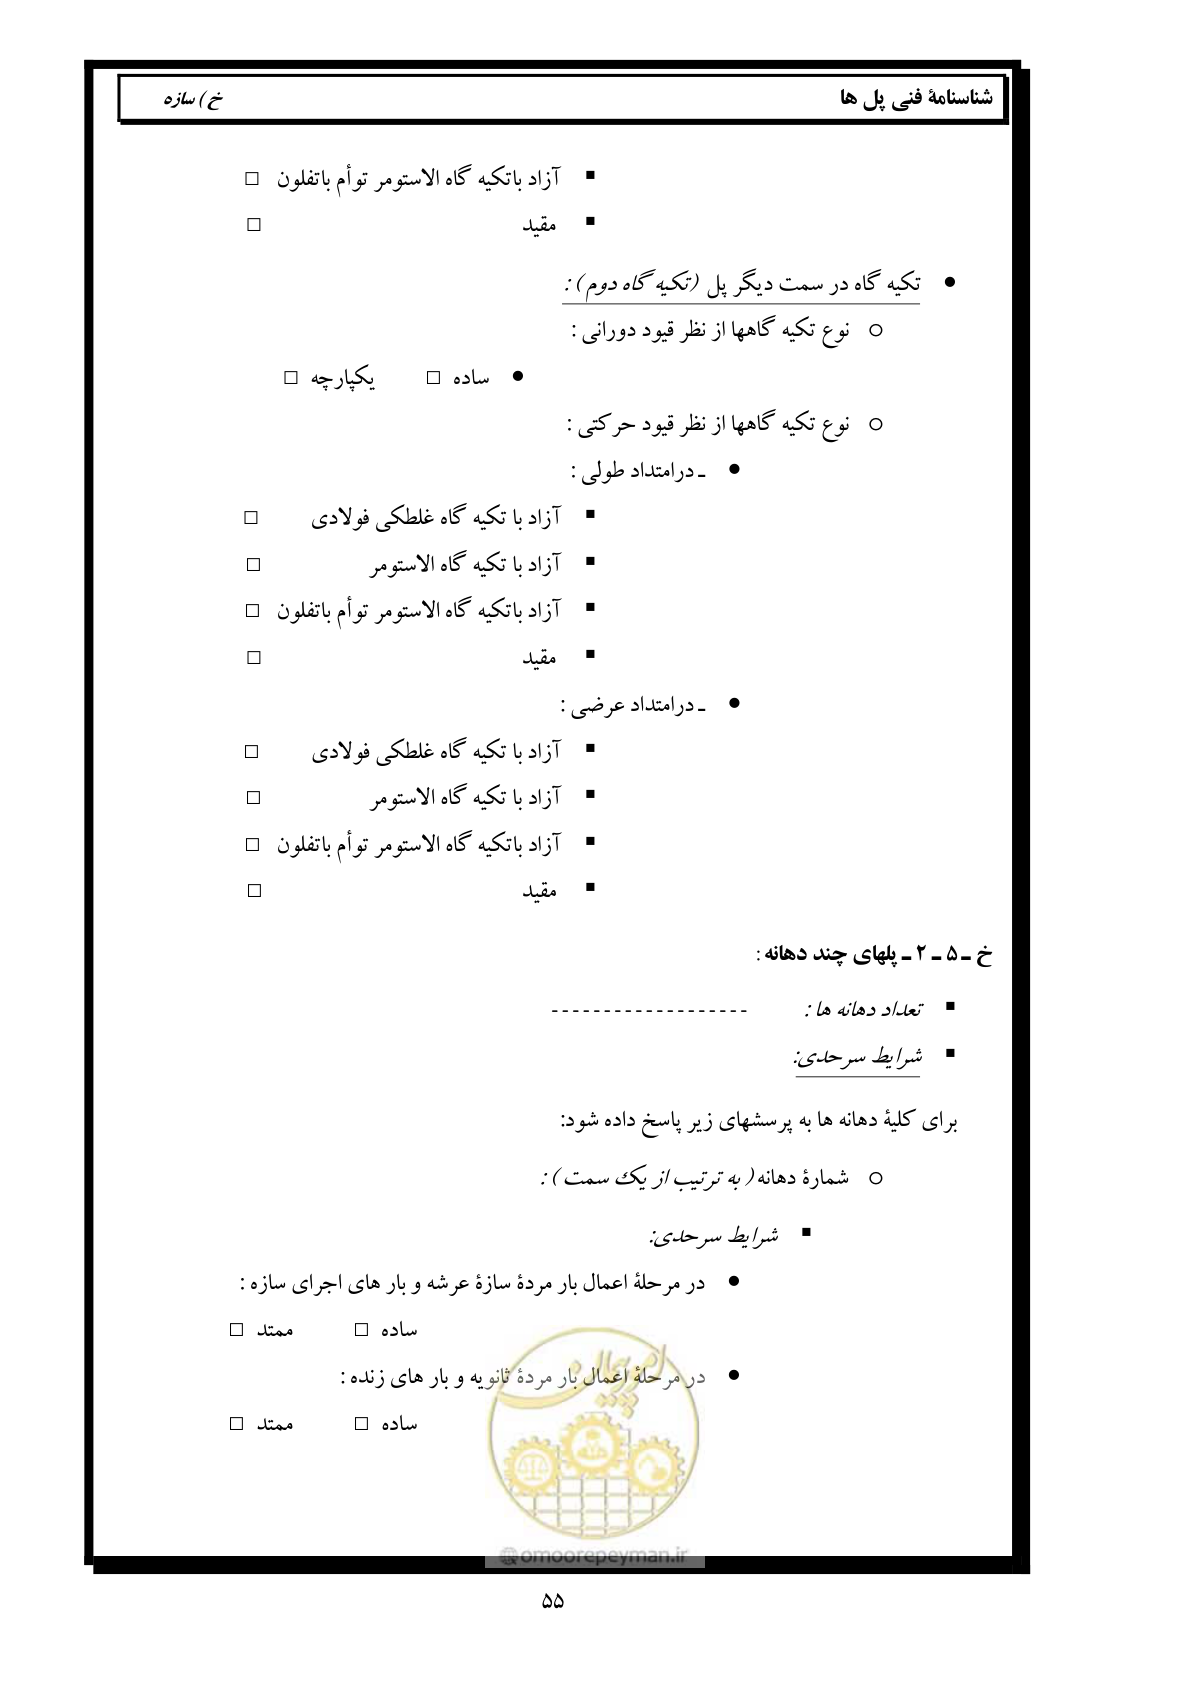 شناسنامهٔ فنی پل ها
خ) سازه
▪ آزاد باتکیه گاه الاستومر توأم باتفلون □
▪ مقید □
● تکیه گاه در سمت دیگر پل (تکیه گاه دوم) :
○ نوع تکیه گاهها از نظر قیود دورانی :
● ساده □ یکپارچه □
○ نوع تکیه گاهها از نظر قیود حرکتی :
● ـ درامتداد طولی :
▪ آزاد با تکیه گاه غلطکی فولادی □
▪ آزاد با تکیه گاه الاستومر □
▪ آزاد باتکیه گاه الاستومر توأم باتفلون □
▪ مقید □
● ـ درامتداد عرضی :
▪ آزاد با تکیه گاه غلطکی فولادی □
▪ آزاد با تکیه گاه الاستومر □
▪ آزاد باتکیه گاه الاستومر توأم باتفلون □
▪ مقید □
خ ـ ۵ ـ ۲ ـ پلهای چند دهانه :
▪ تعداد دهانه ها : -------------------
▪ شرایط سرحدی:
برای کلیهٔ دهانه ها به پرسشهای زیر پاسخ داده شود:
○ شمارهٔ دهانه ( به ترتیب از یک سمت ) :
▪ شرایط سرحدی:
● در مرحلهٔ اعمال بار مردهٔ سازهٔ عرشه و بار های اجرای سازه :
ساده □ ممتد □
● در مرحلهٔ اعمال بار مردهٔ ثانویه و بار های زنده :
ساده □ ممتد □
امور پیمان
@omoorepeyman.ir
۵۵